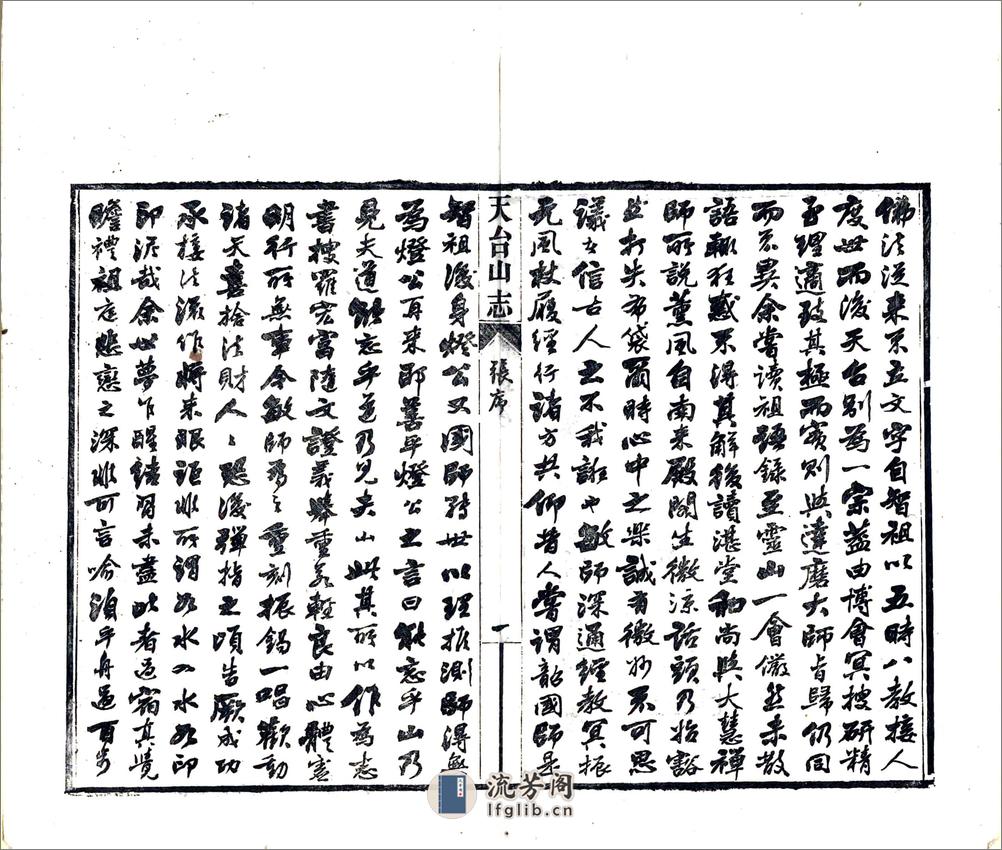 佛法從來不立文字自智祖以五時八教接人
度世而後天台別為一宗蓋由博會冥搜研精
至理適致其極而實則與達磨大師旨歸仍同
而不異余嘗讀祖語錄至靈山一會儼然未散
語輒狂惑不得其解後讀湛堂和尚與大慧禪
師所說薰風自南來殿閣生微涼話頭乃始豁
然打失布袋爾時心中之樂誠有微妙不可思
議者信古人之不我誑也敏師深通經教冥振
玄風杖履經行諸方共仰昔人嘗謂韶國師是
天台山志
張序
一
智祖後身燈公又國師轉世以理推測師得無
為燈公再來耶善乎燈公之言曰能忘乎山乃
見夫道能忘乎道乃見夫山此其所以作為志
書搜羅宏富隨文證義舉重若輕良由心體實
明行所無事今敏師重刻振錫一唱歡動
諸天喜捨法財人人恐後彈指之頃告厥成功
承接法源作將來眼詎非所謂如水入水如印
印泥哉余以夢乍醒結習未盡比者過宿真覺
瞻禮祖庭悲戀之深非可言喻洎乎舟過百步